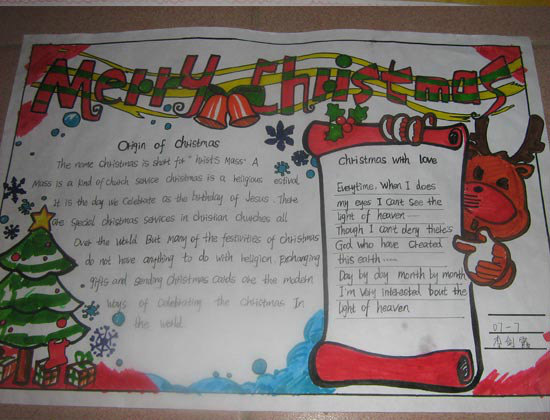 Merry Christmas
Origin of Christmas
The name Christmas is short for "hrists Mass". A
Mass is a kind of church service christmas is a religious estival
It is the day we Celebrate as the birthday of Jesus. There
are special christmas services in christian churches all
Over the world. But many of the festivities of christmas
do not have anything to do with religion. Exchanging
gifts and sending Christmas cards are the modern
ways of celebrating the Christmas In
the world.
Christmas with love
Everytime. When I does
my eyes I cant See the
light of heaven
Though I can't deny there's
God who have Cheated
this earth
Day by day month by month
I'm very interested bout the
light of heaven
07-7